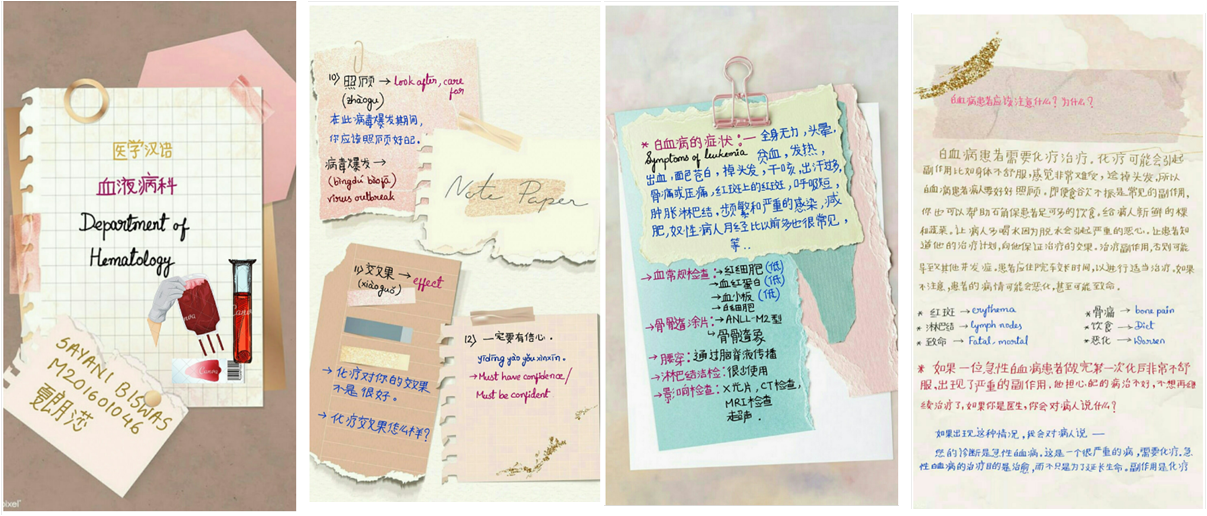 医学汉语
血液病科
Department of
Hematology
Canva
SAYANI BISWAS
M201601046
pixel
10) 照顾 → Look after, care
for
(zhàogu)
在此病毒爆发期间,
你应该照顾好自己.
病毒爆发 →
(bìngdú bàofā)
virus outbreak
Note Paper
effect
(xiàoguǒ)
→ 化疗对你的效果
不是很好。
→ 化疗效果怎么样?
12) 一定要有信心.
yīdìng yào yǒu xìnxīn.
→ Must have confidence/
Must be confident
* 白血病的症状:— 全身无力, 头晕.
Symptoms of leukemia 贫血, 发热,
出血, 面色苍白, 掉头发, 干咳, 出汗过多,
骨痛或压痛, 红斑上的红斑, 呼吸短,
肿胀淋巴结. 频繁和严重的感染, 减
肥, 女性病人月经比以前多也很常见,
等..
→ 血常规检查: → 红细胞 (低)
→ 血红蛋白 (低)
→ 血小板 (低)
→ 白细胞
→ 骨髓涂片: → ANLL-M2型
→ 骨髓造象
→ 腰穿: 通过脑脊液传播
→ 淋巴结活检: 很少使用
→ 影响检查: X光片, CT检查,
MRI检查
超声.
白血病患者应该注意什么? 为什么?
白血病患者需要化疗治疗. 化疗可能会引起
副作用比如身体不舒服, 感见非常难受, 会掉头发, 所以
白血病患者病人要好好照顾, 即使食欲不振是常见的副作用,
你也可以帮助石角保患者足够多的饮食, 给病人新鲜的裸
和蔬菜. 让病人多喝水因为脱水会引起严重的恶心. 让患者知
道他的治疗计划, 向他保证治疗的效果. 治疗副作用, 否则可能
导致其他并发症, 患者应住院较长时间, 以进行适当治疗, 如果
不注意, 患者的病情可能会恶化, 甚至可能致命.
* 红斑 → erythema
* 骨痛 → bone pain
* 淋巴结 → lymph nodes
* 饮食 → Diet
* 致命 → Fatal. mortal
* 恶化 → Worsen
* 如果一位急性白血病患者做完第一次化疗后非常不舒
服, 出现了严重的副作用, 他担心他的病治不好, 不想再继
续治疗了, 如果你是医生, 你会对病人说什么?
如果出现这种情况, 我会对病人说 —
您的诊断是急性白血病, 这是一个很严重的病, 需要化疗. 急
性白血病的治疗目的是治愈, 而不只是为了延长生命. 副作用是化疗